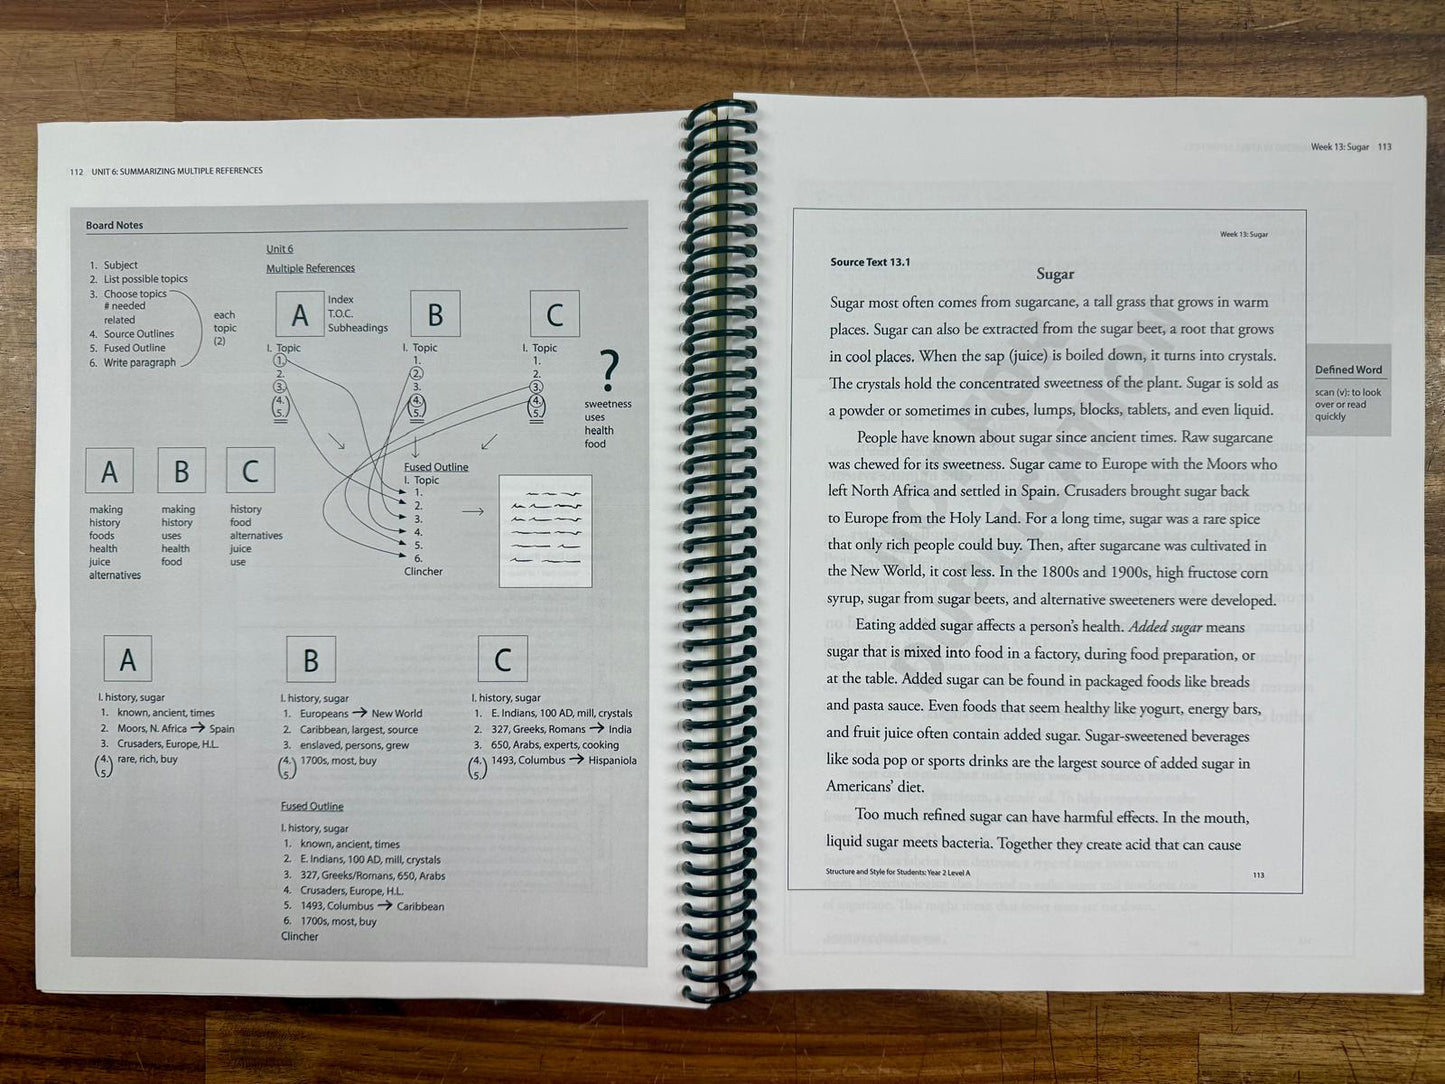 112 UNIT 6: SUMMARIZING MULTIPLE REFERENCES
Board Notes
Unit 6
Multiple References
1. Subject
2. List possible topics
3. Choose topics
# needed
related
4. Source Outlines
5. Fused Outline
6. Write paragraph
each
topic
(2)
A
Index
T.O.C.
Subheadings
I. Topic
1.
2.
3.
(4.
5.)
B
I. Topic
1.
2.
3.
(4.
5.)
C
I. Topic
1.
2.
3.
(4.
5.)
?
sweetness
uses
health
food
A
making
history
foods
health
juice
alternatives
B
making
history
uses
health
food
C
history
food
alternatives
juice
use
Fused Outline
I. Topic
1.
2.
3.
4.
5.
6.
Clincher
A
I. history, sugar
1. known, ancient, times
2. Moors, N. Africa → Spain
3. Crusaders, Europe, H.L.
(4. rare, rich, buy
5.)
B
I. history, sugar
1. Europeans → New World
2. Caribbean, largest, source
3. enslaved, persons, grew
(4. 1700s, most, buy
5.)
C
I. history, sugar
1. E. Indians, 100 AD, mill, crystals
2. 327, Greeks, Romans → India
3. 650, Arabs, experts, cooking
(4. 1493, Columbus → Hispaniola
5.)
Fused Outline
I. history, sugar
1. known, ancient, times
2. E. Indians, 100 AD, mill, crystals
3. 327, Greeks/Romans, 650, Arabs
4. Crusaders, Europe, H.L.
5. 1493, Columbus → Caribbean
6. 1700s, most, buy
Clincher
Week 13: Sugar 113
Week 13: Sugar
Source Text 13.1
Sugar
Sugar most often comes from sugarcane, a tall grass that grows in warm
places. Sugar can also be extracted from the sugar beet, a root that grows
in cool places. When the sap (juice) is boiled down, it turns into crystals.
The crystals hold the concentrated sweetness of the plant. Sugar is sold as
a powder or sometimes in cubes, lumps, blocks, tablets, and even liquid.
People have known about sugar since ancient times. Raw sugarcane
was chewed for its sweetness. Sugar came to Europe with the Moors who
left North Africa and settled in Spain. Crusaders brought sugar back
to Europe from the Holy Land. For a long time, sugar was a rare spice
that only rich people could buy. Then, after sugarcane was cultivated in
the New World, it cost less. In the 1800s and 1900s, high fructose corn
syrup, sugar from sugar beets, and alternative sweeteners were developed.
Eating added sugar affects a person's health. Added sugar means
sugar that is mixed into food in a factory, during food preparation, or
at the table. Added sugar can be found in packaged foods like breads
and pasta sauce. Even foods that seem healthy like yogurt, energy bars,
and fruit juice often contain added sugar. Sugar-sweetened beverages
like soda pop or sports drinks are the largest source of added sugar in
Americans' diet.
Too much refined sugar can have harmful effects. In the mouth,
liquid sugar meets bacteria. Together they create acid that can cause
Structure and Style for Students: Year 2 Level A
113
Defined Word
scan (v): to look
over or read
quickly